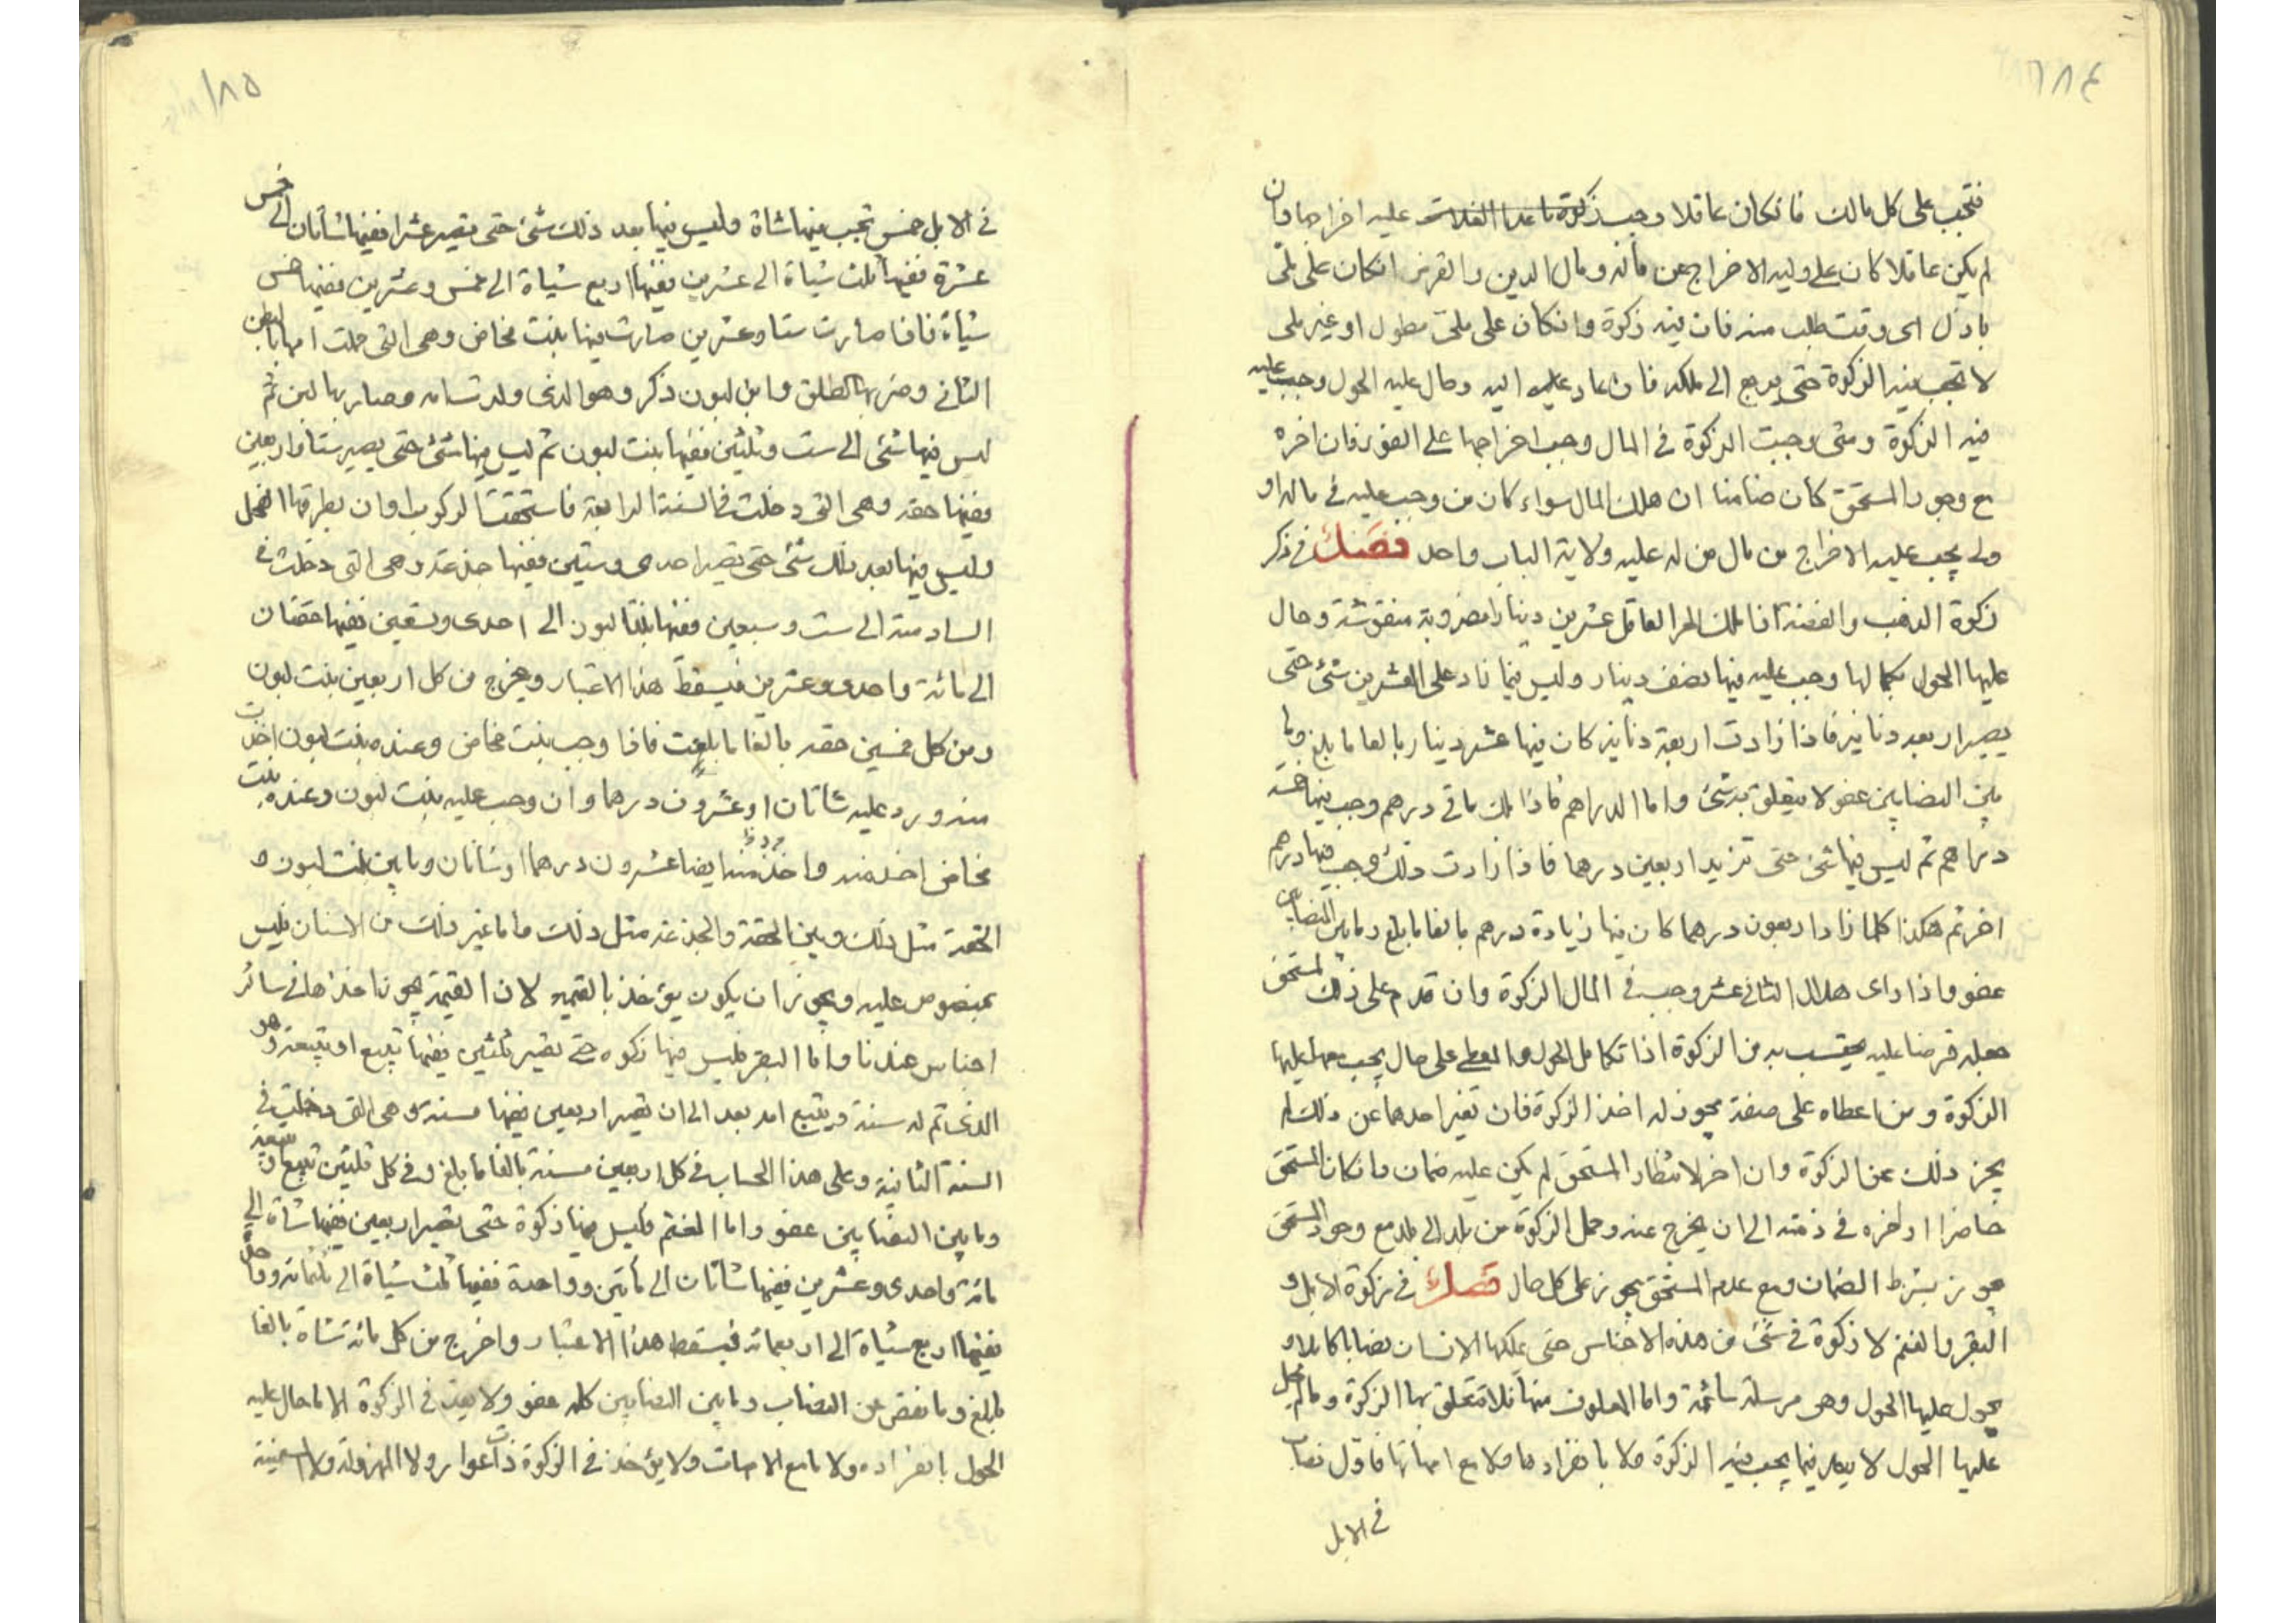 ١٨٤
فتجب على كل مالك فان كان عاقلا وجب زكوة ما عدا الغلات عليه اخراجها وان
لم يكن عاقلا كان على وليه الاخراج عن ماله ومال الدين والقرض ان كان على ملى
باذل اى وقت طلب منه فان فيه زكوة وان كان على ملى مطول او غير ملى
لا تجب فيه الزكوة حتى يرجع الى ملكه فان عاد عليه اليه وحال عليه الحول وجب عليه
فيه الزكوة ومتى وجبت الزكوة فى المال وجب اخراجها على الفور فان اخره
مع وجود المستحق كان ضامنا ان هلك المال سواء كان من وجب عليه فى ماله او
ولى يجب عليه الاخراج من مال من له عليه ولاية الباب واحد فصل فى ذكر
زكوة الذهب والفضة اذا ملك الحر العاقل عشرين دينارا مضروبة منقوشة وحال
عليها الحول بكمالها وجب عليه فيها نصف دينار وليس فيما زاد على العشرين شئ حتى
يصير اربعه دنانير فاذا زادت اربعة دنانير كان فيها عشر دينار بالغا ما بلغ وما
بين النصابين عفو لا يتعلق به شئ واما الدراهم فاذا ملك مأتى درهم وجب فيها خمسة
دراهم ثم ليس فيها شئ حتى تزيد اربعين درهما فاذا زادت ذلك وجب فيها درهم
اخر ثم هكذا كلما زاد اربعون درهما كان فيها زيادة درهم بالغا ما بلغ وما بين النصابين
عفو واذا راى هلال الثانى عشر وجب فى المال الزكوة وان قدم على ذلك لمستحق
جعله قرضا عليه يحتسب به من الزكوة اذا تكامل الحول والمعطى على حال يجب معها عليها
الزكوة ومن اعطاه على صفة يجوز له اخذ الزكوة فان تغير احدهما عن ذلك لم
يجز ذلك عن الزكوة وان اخر لانتظار المستحق لم يكن عليه ضمان وان كان المستحق
حاضرا او اخره فى ذمته الى ان يخرج عنه وحمل الزكوة من بلد الى بلد مع وجود المستحق
يجوز بشرط الضمان ومع عدم المستحق يجوز على كل حال فصل فى زكوة الابل و
البقر والغنم لا زكوة فى شئ من هذه الاجناس حتى يملكها الانسان نصابا كاملا و
يحول عليها الحول وهى مرسلة سائمة واما المعلوف منها فلا تتعلق بها الزكوة وما لم يحل
عليها الحول لا يعد فيما يجب فيه الزكوة لا بانفرادها ولا مع امهاتها فاول نصاب
فى الابل
١٨٥
فى الابل خمس تجب فيها شاة وليس فيها بعد ذلك شئ حتى تصير عشرا ففيها شاتان الى خمس
عشرة ففيها ثلث شياة الى عشرين ففيها اربع شياة الى خمس وعشرين ففيها خمس
شياة فاذا صارت ستا وعشرين صارت فيها بنت مخاض وهى التى حملت امها بالبطن
الثانى وضربها الطلق وابن لبون ذكر وهو الذى ولدت امه وصار بها لبن ثم
ليس فيها شئ الى ست وثلثين ففيها بنت لبون ثم ليس فيها شئ حتى يصير ستا واربعين
ففيها حقه وهى التى دخلت فى السنة الرابعة فاستحقت الركوب او ان يطرقها الفحل
وليس فيها بعد ذلك شئ حتى تصير احدى وستين ففيها جذعة وهى التى دخلت فى
السادسة الى ست وسبعين ففيها بنتا لبون الى احدى وتسعين ففيها حقتان
الى مائة واحدى وعشرين فيسقط هذا الاعتبار ويخرج من كل اربعين بنت لبون
ومن كل خمسين حقه بالغا ما بلغت فاذا وجب بنت مخاض وعنده بنت لبون اخذت
منه ورد عليه شاتان او عشرون درهما وان وجب عليه بنت لبون وعنده بنت
مخاض اخذ منه واخذ منه ايضا عشرون درهما او شاتان وما بين بنت لبون و
الحقة مثل ذلك وبين الحقة والجذعة مثل ذلك واما غير ذلك من الاسنان فليس
بمنصوص عليه ويجوز ان يكون يؤخذ بالقيمه لان القيمة يجوز اخذها فى سائر
اجناس عندنا واما البقر فليس فيها زكوه حتى تصير ثلثين ففيها تبيع او تبيعة وهو
الذى تم له سنة ويتبع امه بعد الى ان تصير اربعين ففيها مسنة وهى التى دخلت فى
السنة الثانية وعلى هذا الحساب فى كل اربعين مسنة بالغا ما بلغ وفى كل ثلثين تبيع او تبيعة
وما بين النصابين عفو واما الغنم فليس فيها زكوة حتى تصير اربعين ففيها شاة الى
مائة واحدى وعشرين ففيها شاتان الى مأتين وواحدة ففيها ثلث شياة الى ثلثمائة وواحدة
ففيها اربع شياة الى اربعمائة فيسقط هذا الاعتبار واخرج من كل مائة شاة بالغا
ما بلغ وما نقص عن النصاب وما بين النصابين كله عفو ولا يعد فى الزكوة الا ما حال عليه
الحول بانفراده ولا مع الامهات ولا يؤخذ فى الزكوة ذات عوار ولا المهزولة ولا السمينة